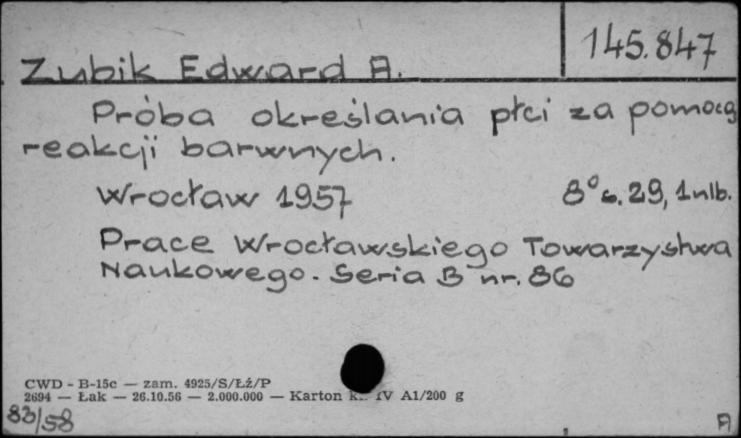 145.847
Zubik Edward A.
Próba określania płci za pomocą
reakcji barwnych.
Wrocław 1957 8° s. 29, 1 nlb.
Prace Wrocławskiego Towarzystwa
Naukowego. Seria B nr. 86
CWD - B-15c — zam. 4925/S/Łź/P
2694 — Łak — 26.10.56 — 2.000.000 — Karton IV A1/200 g
83/58
A